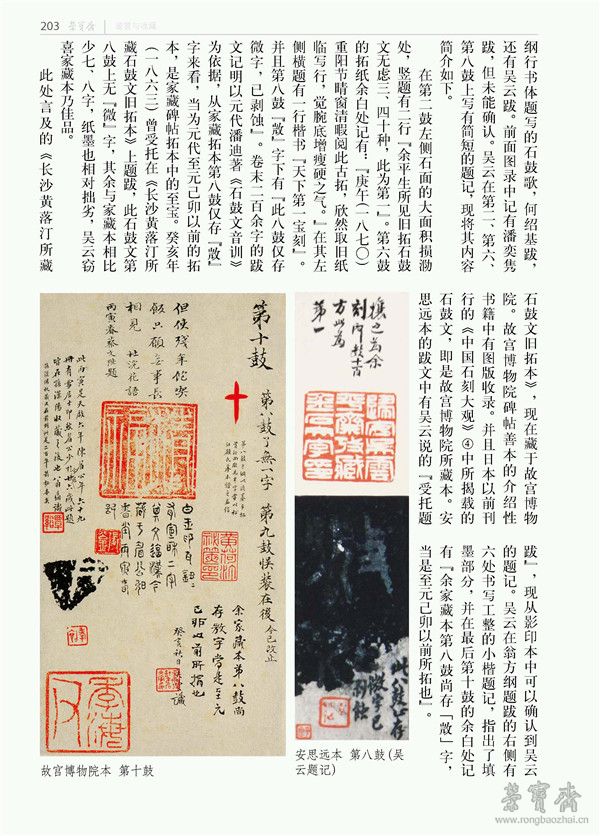 203 荣宝斋 | 鉴赏与收藏
纲行书体题写的石鼓歌，何绍基跋，
还有吴云跋。前面图录中记有潘奕隽
跋，但未能确认。吴云在第二、第六、
第八鼓上写有简短的题记，现将其内容
简介如下。
在第二鼓左侧石面的大面积损泐
处，竖题有二行『余平生所见旧拓石鼓
文无虑三、四十种，此为第一』。第六鼓
的拓纸余白处记有：『庚午（一八七〇）
重阳节晴窗清暇阅此古拓，欣然取旧纸
临写行，觉腕底增瘦硬之气。』在其左
侧横题有一行楷书『天下第一宝刻』。
并且第八鼓『㪚』字下有『此八鼓仅存
微字，已剥蚀』。卷末二百余字的跋
文记明以元代潘迪著《石鼓文音训》
为依据，从家藏拓本第八鼓仅存『㪚』
字来看，当为元代至元己卯以前的拓
本，是家藏碑帖拓本中的至宝。癸亥年
（一八六三）曾受托在《长沙黄落汀所
藏石鼓文旧拓本》上题跋，此石鼓文第
八鼓上无『微』字，其余与家藏本相比
少七、八字，纸墨也相对拙劣，吴云窃
喜家藏本乃佳品。
此处言及的《长沙黄落汀所藏
石鼓文旧拓本》，现在藏于故宫博物
院。故宫博物院碑帖善本的介绍性
书籍中有图版收录。并且日本以前刊
行的《中国石刻大观》④中所揭载的
石鼓文，即是故宫博物院所藏本。安
思远本的跋文中有吴云说的『受托题
跋』，现从影印本中可以确认到吴云
的题记。吴云在翁方纲题跋的右侧有
六处书写工整的小楷题记，指出了填
墨部分，并在最后第十鼓的余白处记
有『余家藏本第八鼓尚存「㪚」字，
当是至元己卯以前所拓也』。
第一
安思远本 第八鼓（吴
云题记）
第十鼓
第八鼓了无一字
第九鼓误装在後 今已改正
余家藏本第八鼓尚
存数字當是至元
己卯以前所搨也
癸亥秋日
故宫博物院本 第十鼓
荣宝斋
www.rongbaozhai.cn